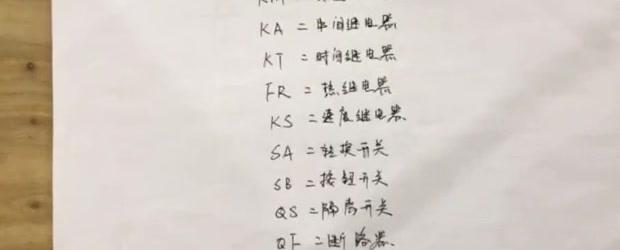 KA = 中间继电器
KT = 时间继电器
FR = 热继电器
KS = 速度继电器
SA = 转换开关
SB = 按钮开关
QS = 隔离开关
QF = 断路器